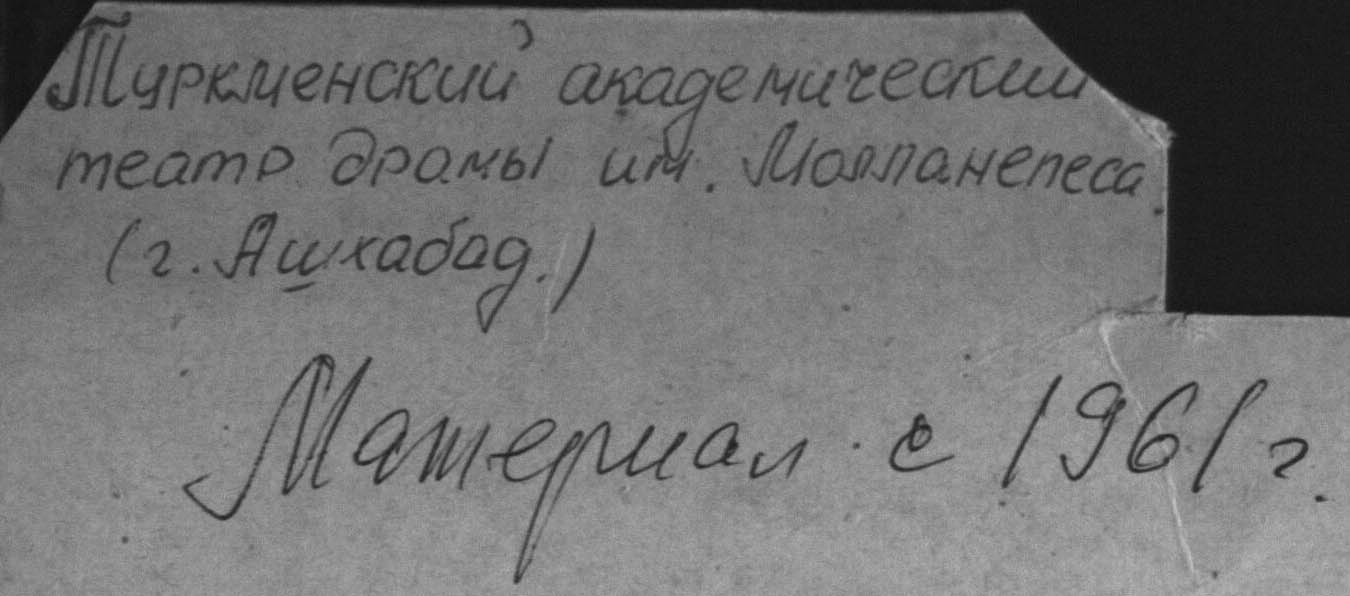 Туркменский академический
театр драмы им. Молланепеса
(г. Ашхабад.)
Материал с 1961 г.